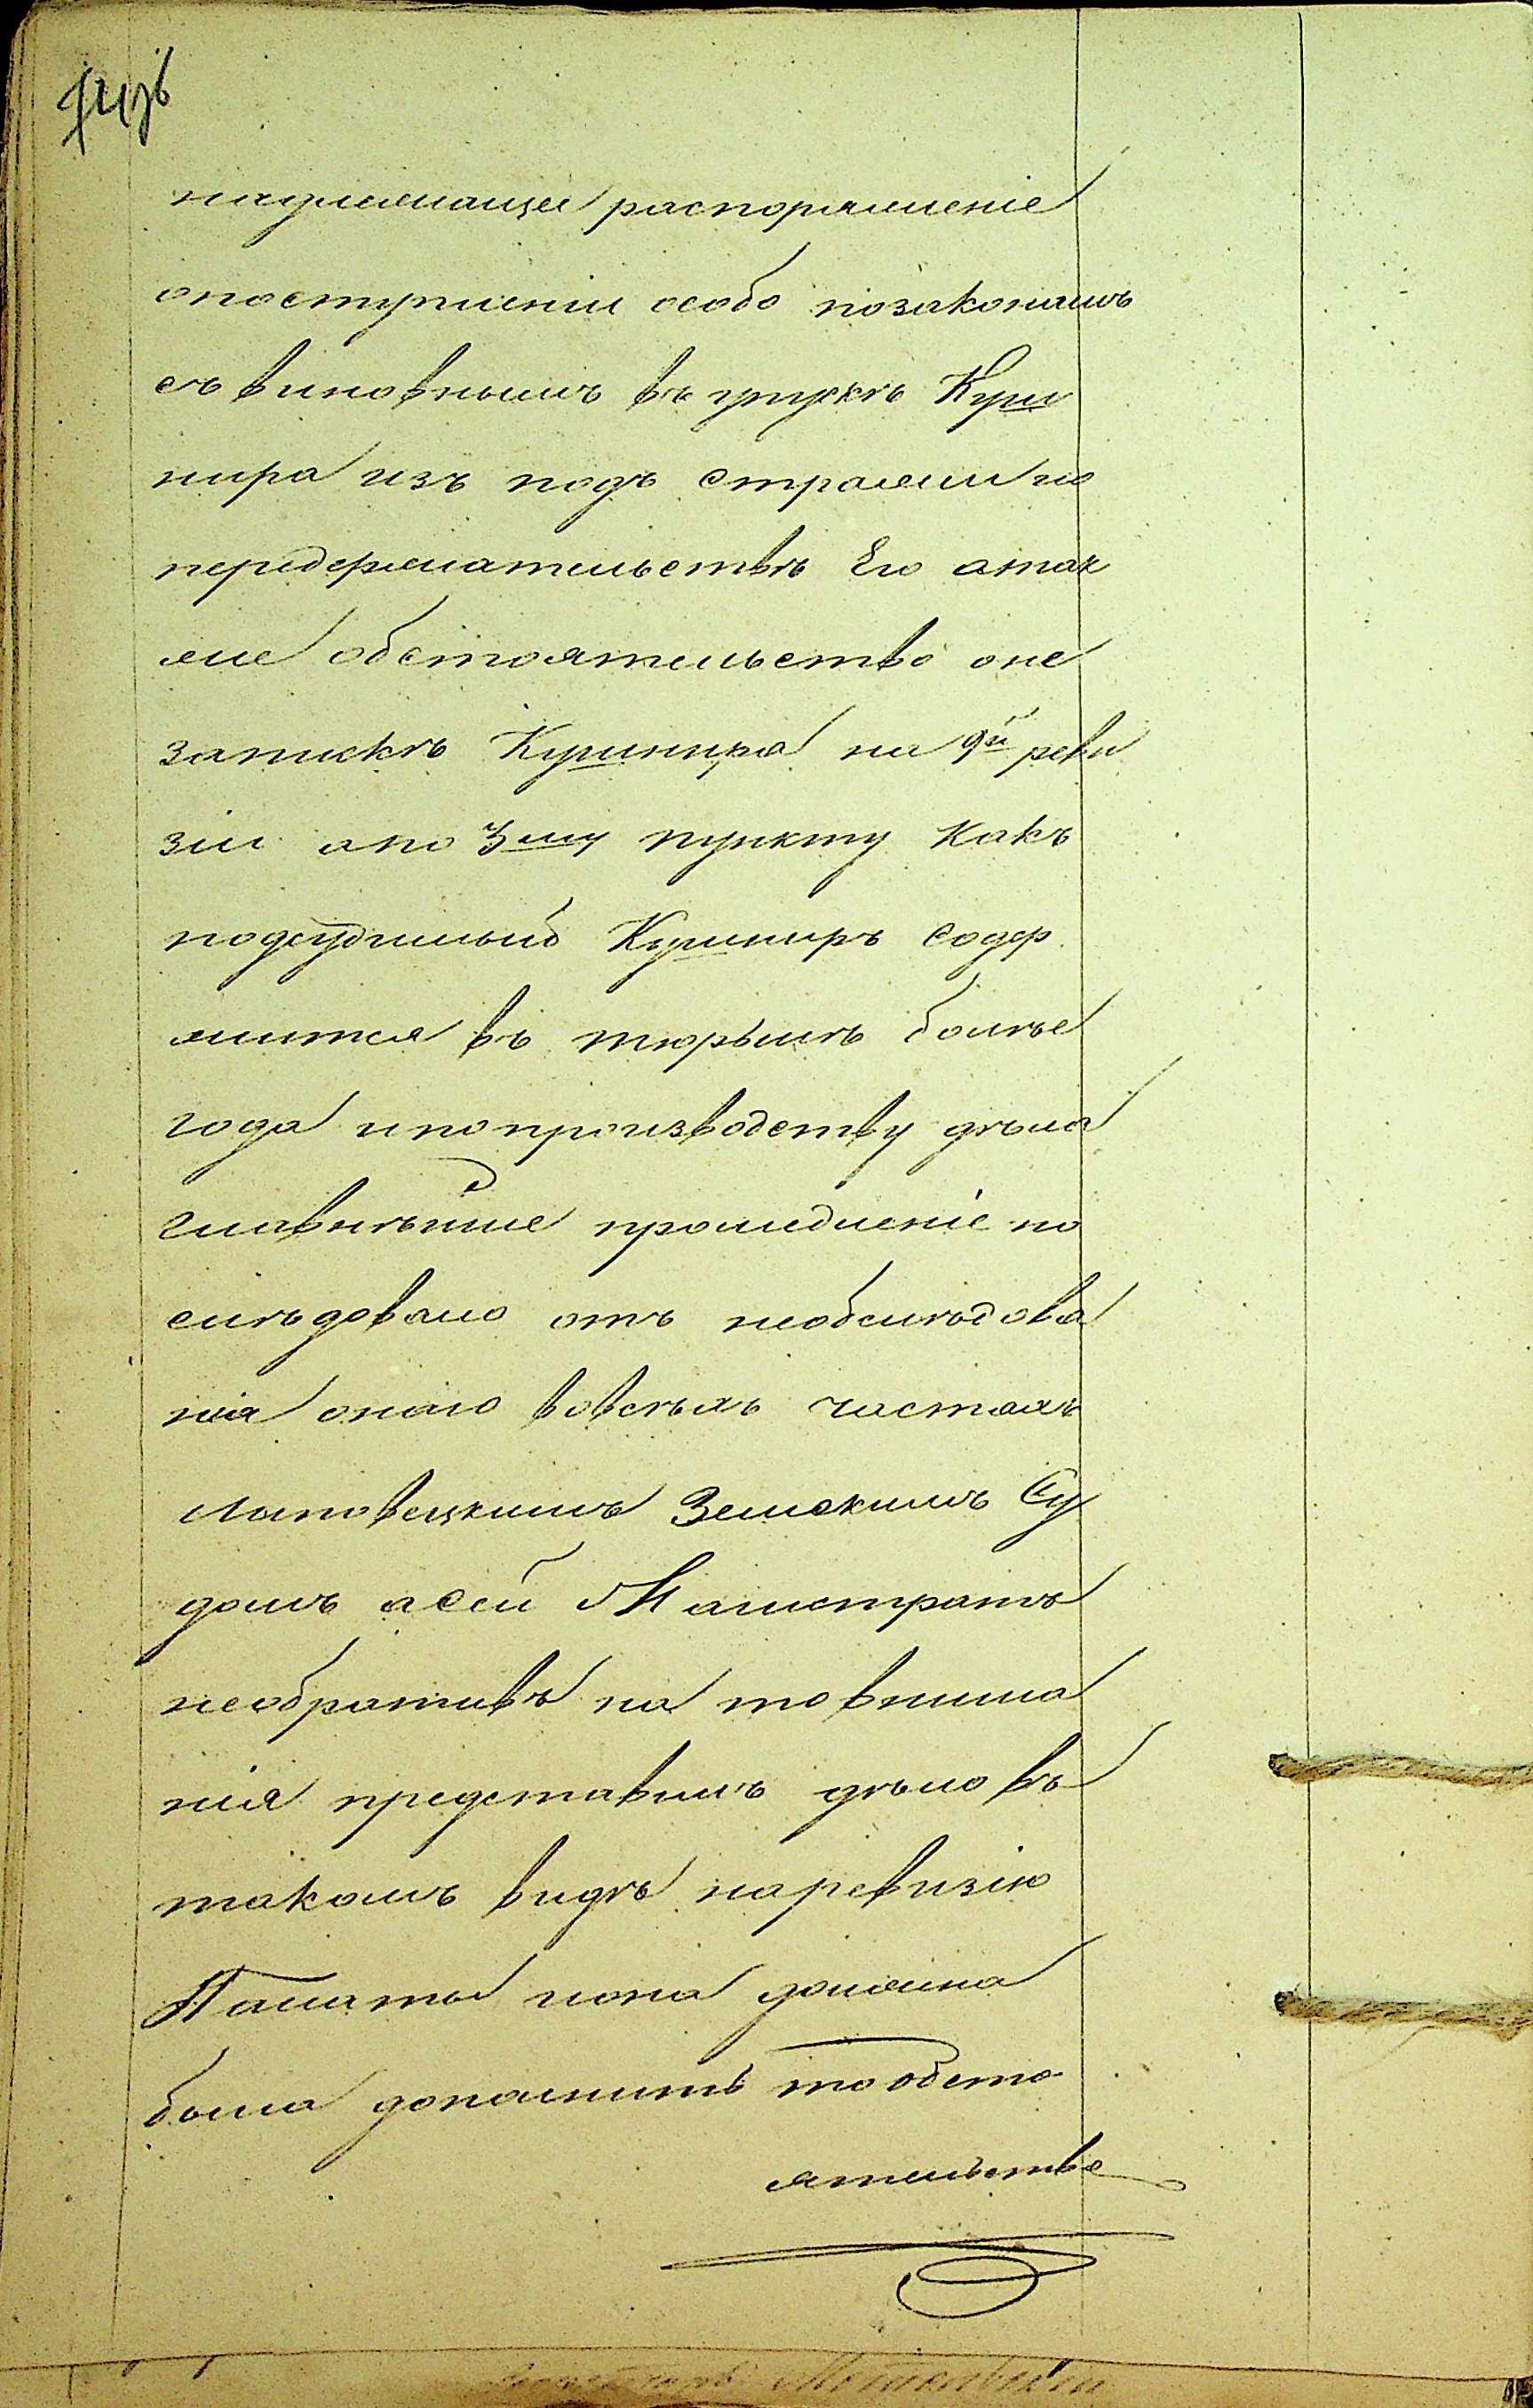 надлежащее распоряженіе
опоступленіи особо позаконамъ
съ виновнымъ въ упускѣ Куш
нира изъ подъ стражи ио
передержательствѣ Его атак
же обстоятельство оне
запискѣ Кушнира на 9й реви
зіи апо 3му пункту какъ
подсудимый Кушниръ содер
жится въ тюрьмѣ болѣе
года ипопроизводству дѣла
главнѣйше промедленіе по
слѣдовало отъ необслѣдова
нія онаго вовсѣхъ частяхъ
Летичевскимъ Земскимъ Су
домъ асей Магистратъ
необративъ на то внима
нія представилъ дѣло въ
такомъ видѣ наревизію
Палаты иона должна
была дополнить тообсто
ятельство